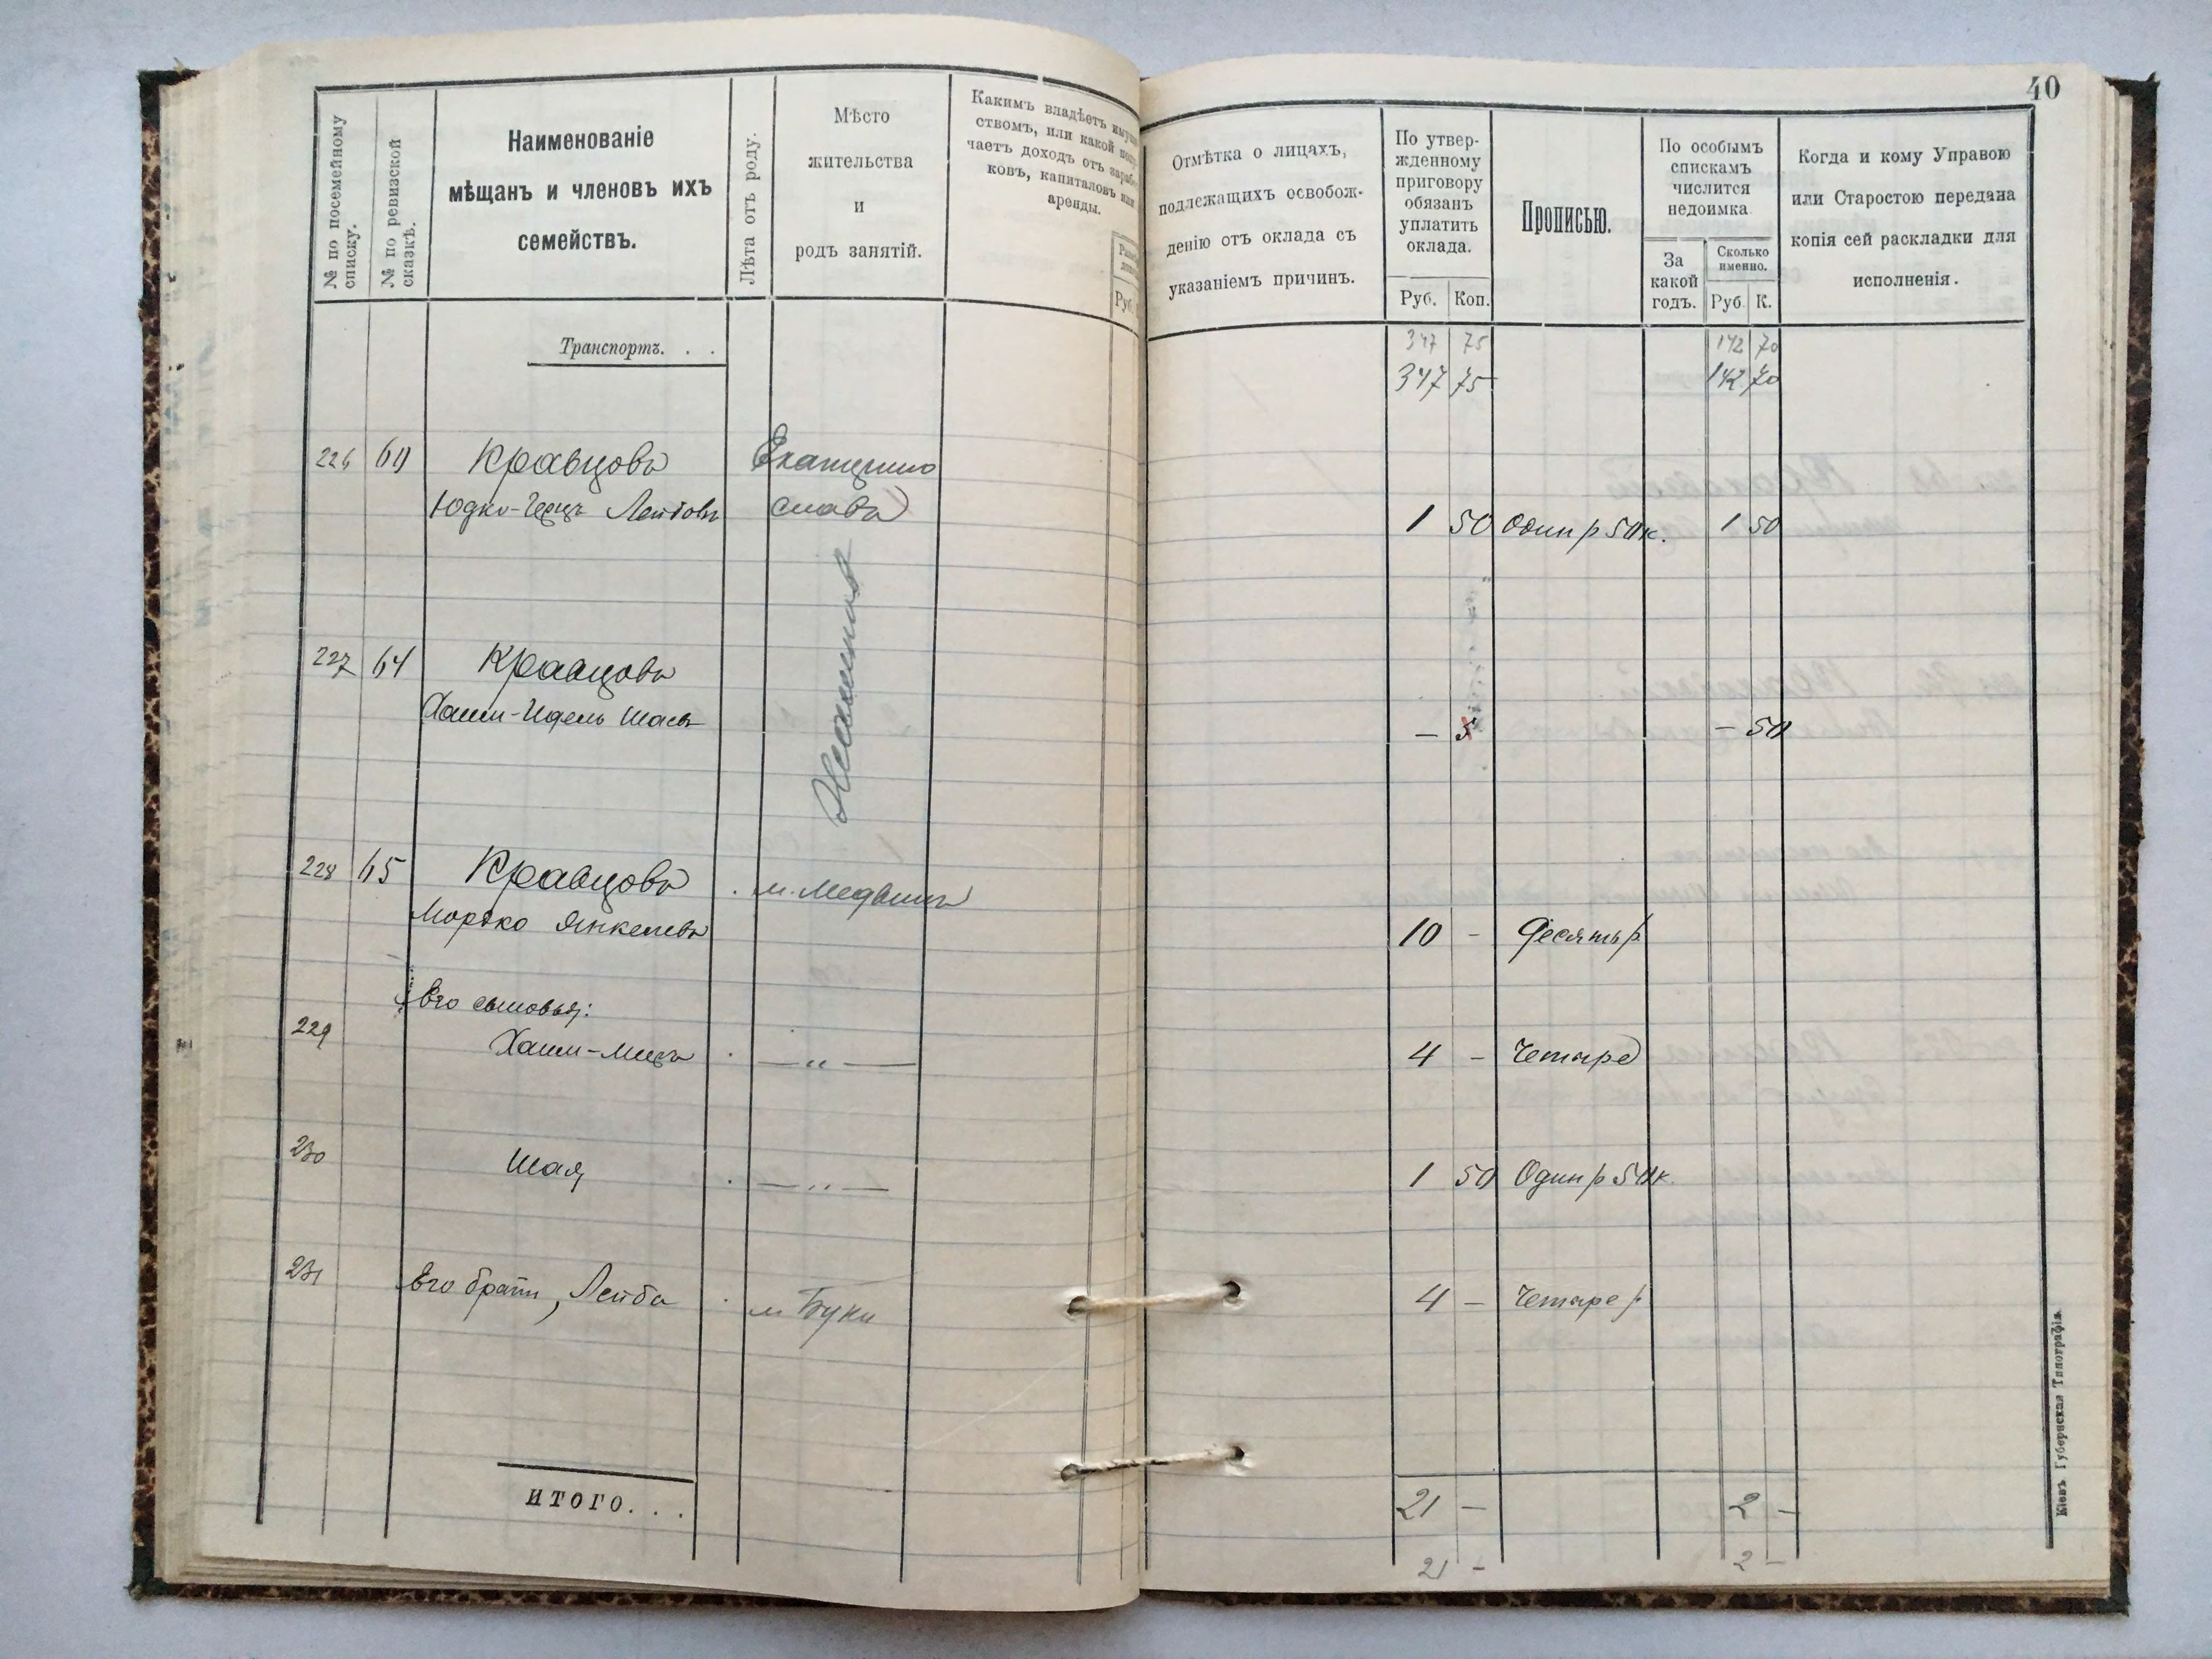 40
№ по посемейному списку.
№ по ревизской сказкѣ.
Наименованіе
мѣщанъ и членовъ ихъ
семействъ.
Лѣта отъ роду.
Мѣсто
жительства
и
родъ занятій.
Какимъ владѣетъ
ствомъ, или какой
чаетъ доходъ отъ
ковъ, капиталовъ или
аренды.
Руб.
Отмѣтка о лицахъ,
подлежащихъ освобож-
денію отъ оклада съ
указаніемъ причинъ.
По утвер-
жденному
приговору
обязанъ
уплатить
оклада.
Руб. Коп.
Прописью.
По особымъ
спискамъ
числится
недоимка
За
какой
годъ.
Сколько
именно.
Руб. К.
Когда и кому Управою
или Старостою передана
копія сей раскладки для
исполненія.
Транспортъ. . .
347 75 142 70
347 75 142 70
226 60 Кравцовъ Екатерино
Юдко-Герцъ Лейбовъ слава
1 50 Один р 50 к. 1 50
227 64 Кравцовъ
Хаим-Идель Шаевъ
– 5 – 50
228 65 Кравцовъ м. Медвинъ
Мордко Янкелевъ
10 - Десять р.
Его сыновья:
229 Хаим- — „ — 4 - Четыре
230 Шая — „ — 1 50 Один р 50 к.
231 Его братъ, Лейба м Буки 4 – Четыре р
ИТОГО. . .
21 – 2 –
21 - 2 –
Кіевъ Губернская Типографія.